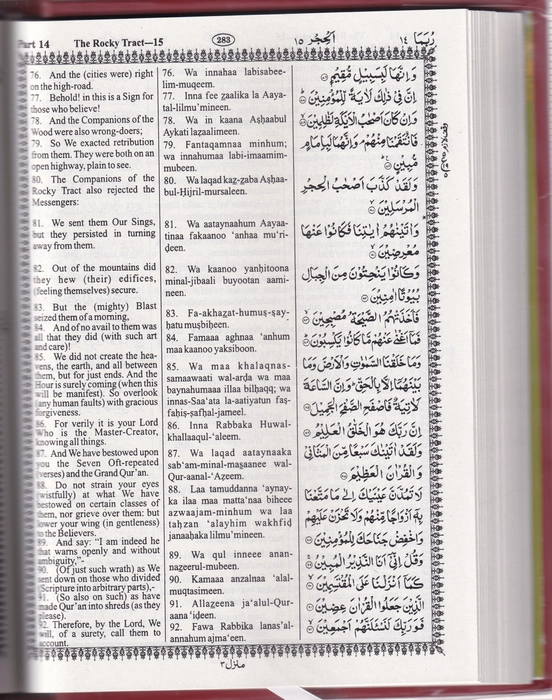 Part 14
The Rocky Tract—15
283
الحجر ١٥
ربما ١٤
76. And the (cities were) right
on the high-road.
77. Behold! in this is a Sign for
those who believe!
78. And the Companions of the
Wood were also wrong-doers;
79. So We exacted retribution
from them. They were both on an
open highway, plain to see.
80. The Companions of the
Rocky Tract also rejected the
Messengers:
81. We sent them Our Sings,
but they persisted in turning
away from them.
82. Out of the mountains did
they hew (their) edifices,
(feeling themselves) secure.
83. But the (mighty) Blast
seized them of a morning,
84. And of no avail to them was
all that they did (with such art
and care)!
85. We did not create the hea-
vens, the earth, and all between
them, but for just ends. And the
Hour is surely coming (when this
will be manifest). So overlook
(any human faults) with gracious
forgiveness.
86. For verily it is your Lord
Who is the Master-Creator,
knowing all things.
87. And We have bestowed upon
you the Seven Oft-repeated
(verses) and the Grand Qur'an.
88. Do not strain your eyes
(wistfully) at what We have
bestowed on certain classes of
them, nor grieve over them: but
lower your wing (in gentleness)
to the Believers.
89. And say: "I am indeed he
that warns openly and without
ambiguity,"-
90. (Of just such wrath) as We
sent down on those who divided
(Scripture into arbitrary parts),-
91. (So also on such) as have
made Qur'an into shreds (as they
please).
92. Therefore, by the Lord, We
will, of a surety, call them to
account.
76. Wa innahaa labisabee-
lim-muqeem.
77. Inna fee zaalika la Aaya-
tal-lilmu'mineen.
78. Wa in kaana Aṣḥaabul
Aykati laẓaalimeen.
79. Fantaqamnaa minhum;
wa innahumaa labi-imaamim-
mubeen.
80. Wa laqad kaẓ-ẓaba Aṣḥaa-
bul-Ḥijril-mursaleen.
81. Wa aataynaahum Aayaa-
tinaa fakaanoo 'anhaa mu'ri-
ḍeen.
82. Wa kaanoo yanḥitoona
minal-jibaali buyootan aami-
neen.
83. Fa-akhaẓat-humuṣ-ṣay-
ḥatu muṣbiḥeen.
84. Famaaa aghnaa 'anhum
maa kaanoo yaksiboon.
85. Wa maa khalaqnas-
samaawaati wal-arḍa wa maa
baynahumaaa illaa bilḥaqq; wa
innas-Saa'ata la-aatiyatun faṣ-
faḥiṣ-ṣafḥal-jameel.
86. Inna Rabbaka Huwal-
khallaaqul-'aleem.
87. Wa laqad aataynaaka
sab'am-minal-maṣaanee wal-
Qur-aanal-'Aẓeem.
88. Laa tamuddanna 'aynay-
ka ilaa maa matta'naa biheee
azwaajam-minhum wa laa
taḥzan 'alayhim wakhfiḍ
janaaḥaka lilmu'mineen.
89. Wa qul inneee anan-
nazeerul-mubeen.
90. Kamaaa anzalnaa 'alal-
muqtasimeen.
91. Allaẓeena ja'alul-Qur-
aana 'iḍeen.
92. Fawa Rabbika lanas'al-
annahum ajma'een.
وَإِنَّهَا لَبِسَبِيلٍ مُّقِيمٍ
إِنَّ فِي ذَٰلِكَ لَآيَةً لِّلْمُؤْمِنِينَ
وَإِن كَانَ أَصْحَٰبُ الْأَيْكَةِ لَظَٰلِمِينَ
فَانتَقَمْنَا مِنْهُمْ وَإِنَّهُمَا لَبِإِمَامٍ
مُّبِينٍ
وَلَقَدْ كَذَّبَ أَصْحَٰبُ الْحِجْرِ
الْمُرْسَلِينَ
وَآتَيْنَٰهُمْ آيَٰتِنَا فَكَانُوا عَنْهَا
مُعْرِضِينَ
وَكَانُوا يَنْحِتُونَ مِنَ الْجِبَالِ
بُيُوتًا آمِنِينَ
فَأَخَذَتْهُمُ الصَّيْحَةُ مُصْبِحِينَ
فَمَا أَغْنَىٰ عَنْهُم مَّا كَانُوا يَكْسِبُونَ
وَمَا خَلَقْنَا السَّمَٰوَٰتِ وَالْأَرْضَ وَمَا
بَيْنَهُمَا إِلَّا بِالْحَقِّ وَإِنَّ السَّاعَةَ
لَآتِيَةٌ فَاصْفَحِ الصَّفْحَ الْجَمِيلَ
إِنَّ رَبَّكَ هُوَ الْخَلَّٰقُ الْعَلِيمُ
وَلَقَدْ آتَيْنَٰكَ سَبْعًا مِّنَ الْمَثَانِي
وَالْقُرْآنَ الْعَظِيمَ
لَا تَمُدَّنَّ عَيْنَيْكَ إِلَىٰ مَا مَتَّعْنَا
بِهِ أَزْوَاجًا مِّنْهُمْ وَلَا تَحْزَنْ عَلَيْهِمْ
وَاخْفِضْ جَنَاحَكَ لِلْمُؤْمِنِينَ
وَقُلْ إِنِّي أَنَا النَّذِيرُ الْمُبِينُ
كَمَا أَنزَلْنَا عَلَى الْمُقْتَسِمِينَ
الَّذِينَ جَعَلُوا الْقُرْآنَ عِضِينَ
فَوَرَبِّكَ لَنَسْأَلَنَّهُمْ أَجْمَعِينَ
منزل ٣